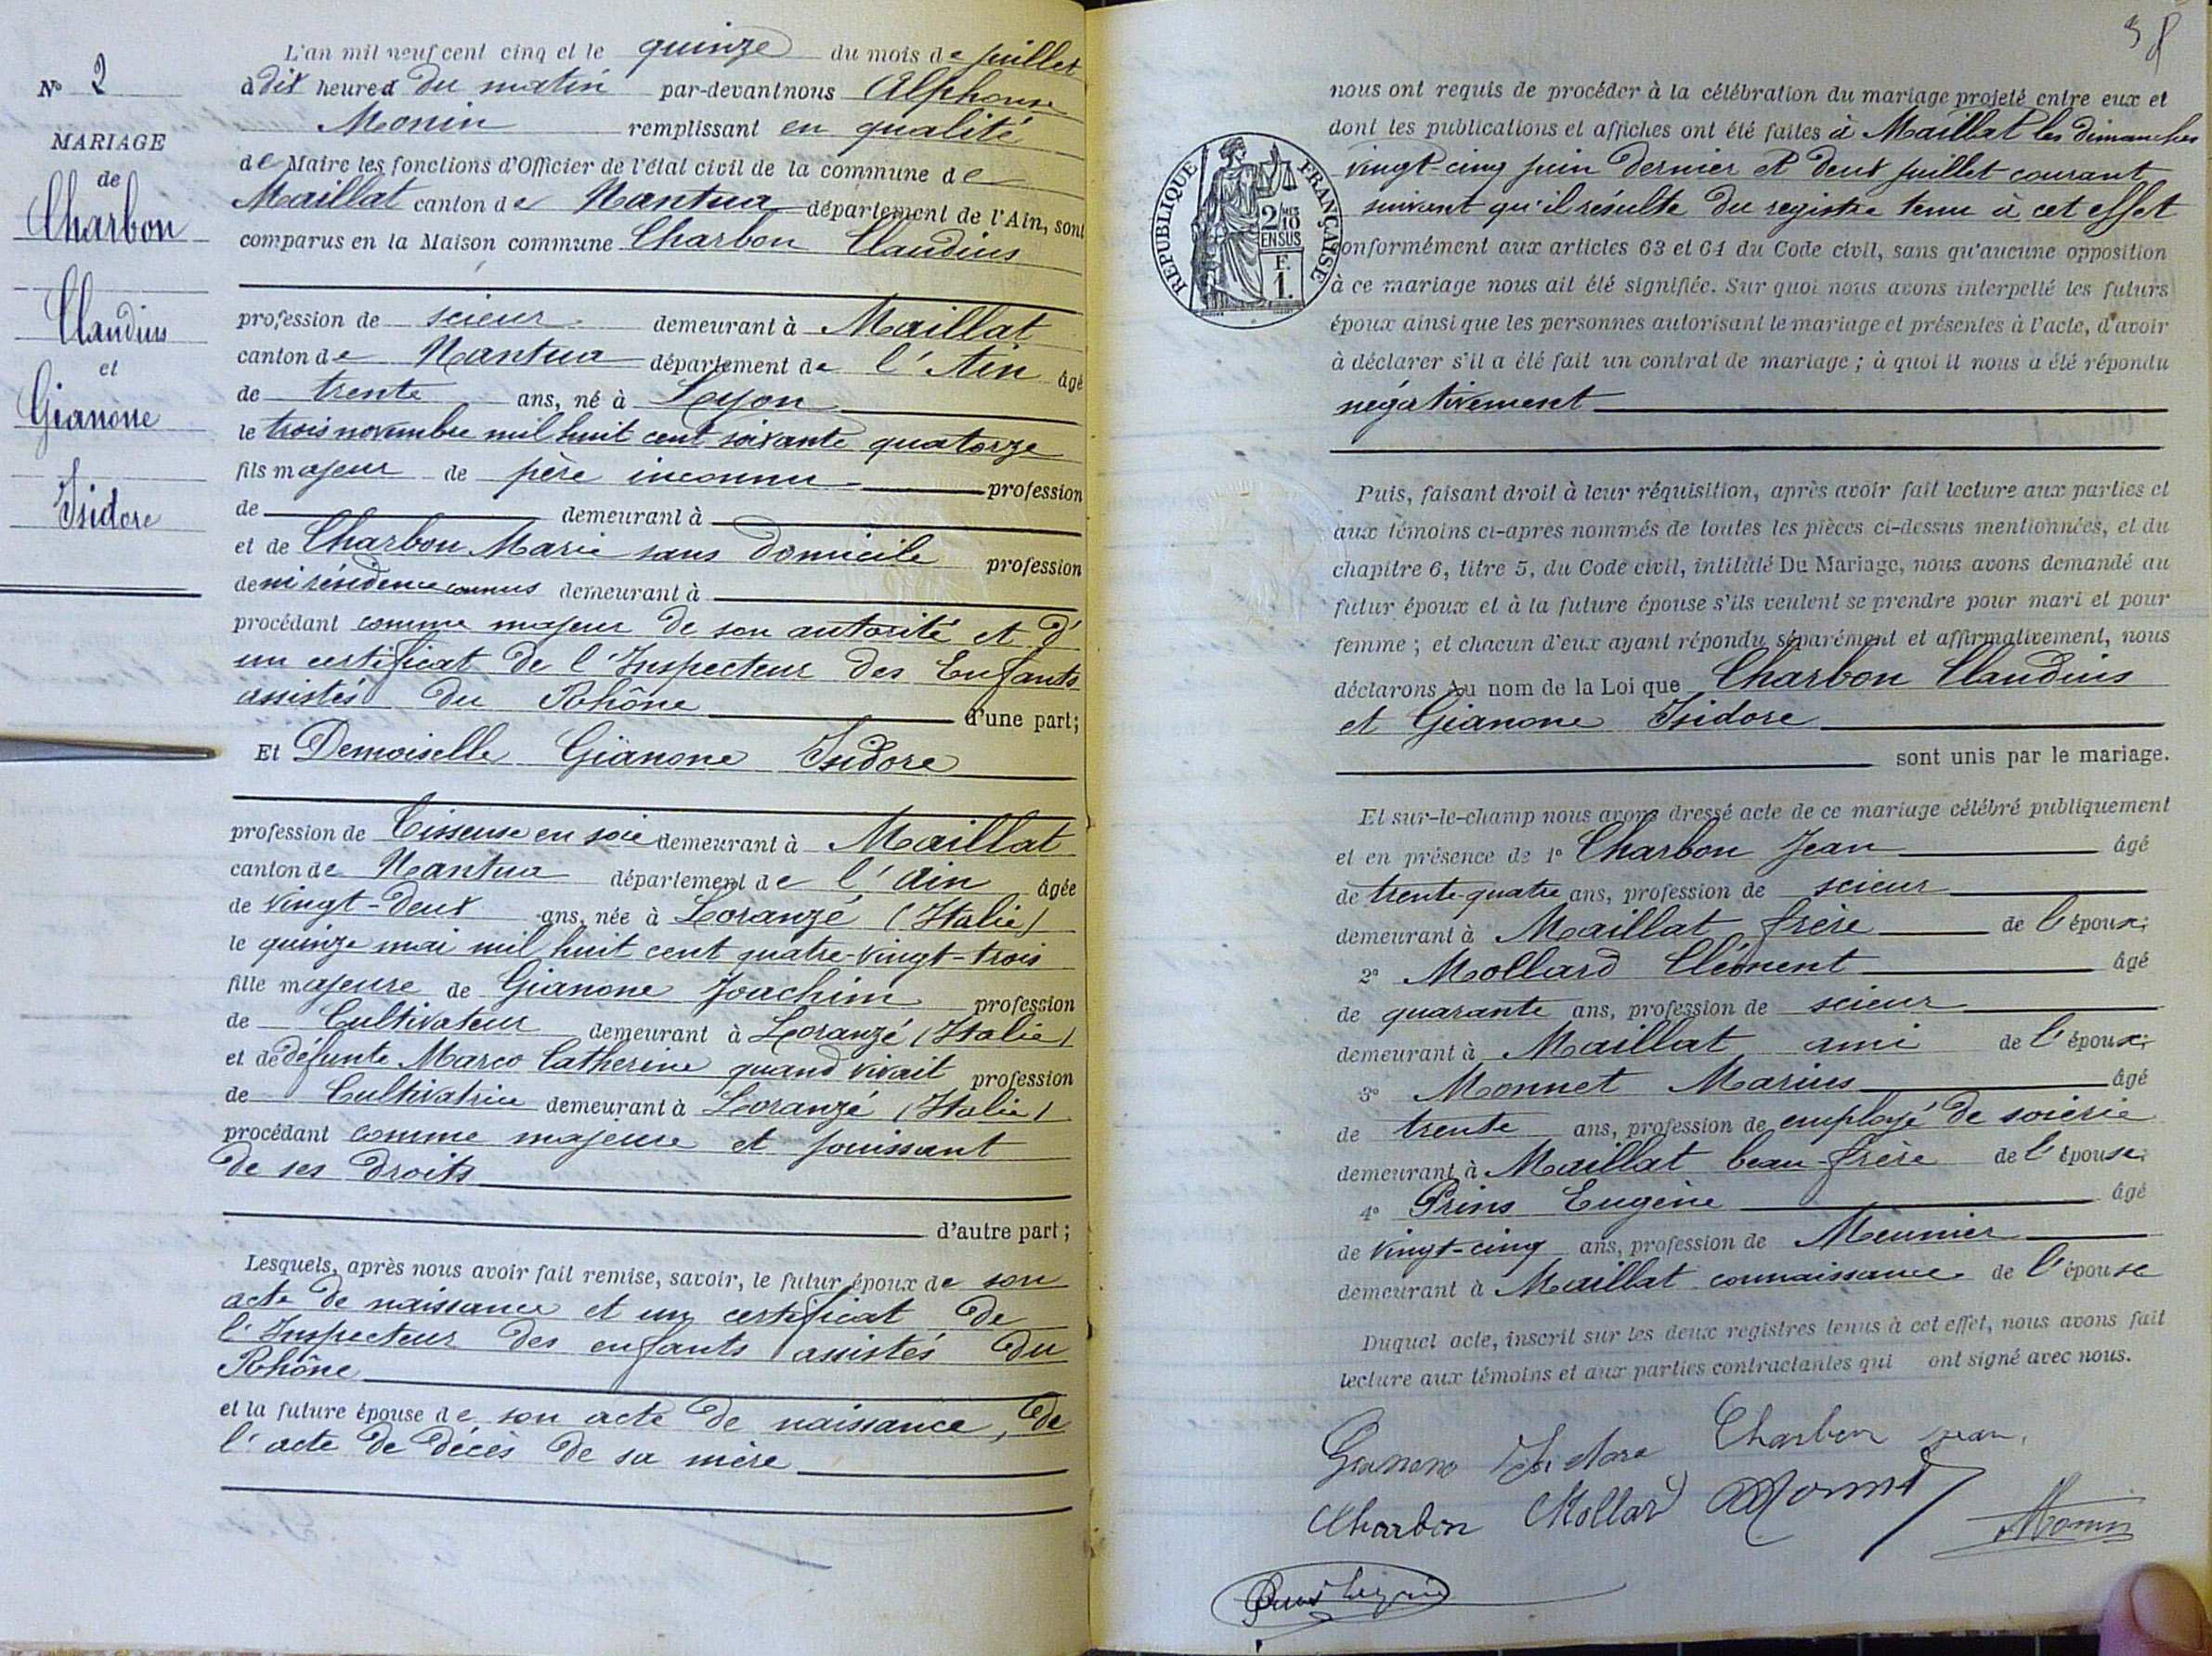 L'an mil neuf cent cinq et le quinze du mois de juillet
à dix heures du matin par-devant nous Alphonse
Monin remplissant en qualité
de Maire les fonctions d'Officier de l'état civil de la commune de
Maillat canton de Nantua département de l'Ain, sont
comparus en la Maison commune Charbon Claudius
profession de scieur demeurant à Maillat
canton de Nantua département de l'Ain âgé
de trente ans, né à Lyon
le trois novembre mil huit cent soixante quatorze
fils majeur de père inconnu profession
de demeurant à
et de Charbon Marie sans domicile profession
de ni résidence connus demeurant à
procédant comme majeur de son autorité et d'
un certificat de l'Inspecteur des Enfants
assistés du Rhône d'une part;
Et Demoiselle Gianone Isidore
profession de Tisseuse en soie demeurant à Maillat
canton de Nantua département de l'Ain âgée
de vingt-deux ans, née à Loranzé (Italie)
le quinze mai mil huit cent quatre-vingt-trois
fille majeure de Gianone Joachim profession
de Cultivateur demeurant à Loranzé (Italie)
et de défunte Marco Catherine quand vivait profession
de Cultivatrice demeurant à Loranzé (Italie)
procédant comme majeure et jouissant
de ses droits
d'autre part;
Lesquels, après nous avoir fait remise, savoir, le futur époux de son
acte de naissance et un certificat de
l'Inspecteur des enfants assistés du
Rhône
et la future épouse de son acte de naissance, de
l'acte de décès de sa mère
No 2
MARIAGE
de
Charbon
Claudius
et
Gianone
Isidore
38
nous ont requis de procéder à la célébration du mariage projeté entre eux et
dont les publications et affiches ont été faites à Maillat les dimanches
vingt-cinq juin dernier et deux juillet courant
suivant qu'il résulte du registre tenu à cet effet
conformément aux articles 63 et 64 du Code civil, sans qu'aucune opposition
à ce mariage nous ait été signifiée. Sur quoi nous avons interpellé les futurs
époux ainsi que les personnes autorisant le mariage et présentes à l'acte, d'avoir
à déclarer s'il a été fait un contrat de mariage; à quoi il nous a été répondu
négativement
RÉPUBLIQUE FRANÇAISE
2/10
EN SUS
F.
1.
Puis, faisant droit à leur réquisition, après avoir fait lecture aux parties et
aux témoins ci-après nommés de toutes les pièces ci-dessus mentionnées, et du
chapitre 6, titre 5, du Code civil, intitulé Du Mariage, nous avons demandé au
futur époux et à la future épouse s'ils veulent se prendre pour mari et pour
femme; et chacun d'eux ayant répondu séparément et affirmativement, nous
déclarons Au nom de la Loi que Charbon Claudius
et Gianone Isidore
sont unis par le mariage.
Et sur-le-champ nous avons dressé acte de ce mariage célébré publiquement
et en présence de 1° Charbon Jean âgé
de trente-quatre ans, profession de scieur
demeurant à Maillat frère de l'époux;
2° Mollard Clément âgé
de quarante ans, profession de scieur
demeurant à Maillat ami de l'époux;
3° Monnet Marius âgé
de trente ans, profession de employé de soierie
demeurant à Maillat beau-frère de l'épouse;
4° Prins Eugène âgé
de vingt-cinq ans, profession de Meunier
demeurant à Maillat connaissance de l'épouse
Duquel acte, inscrit sur les deux registres tenus à cet effet, nous avons fait
lecture aux témoins et aux parties contractantes qui ont signé avec nous.
Gianone Isidore Charbon Jean
Charbon Mollard Monnet
Monin